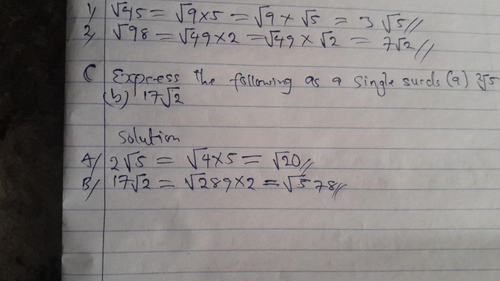 1) √45 = √9×5 = √9 × √5 = 3√5//
2) √98 = √49×2 = √49 × √2 = 7√2//
C Express the following as a single surds (a) 2√5
(b) 17√2
Solution
A/ 2√5 = √4×5 = √20//
B/ 17√2 = √289×2 = √578//